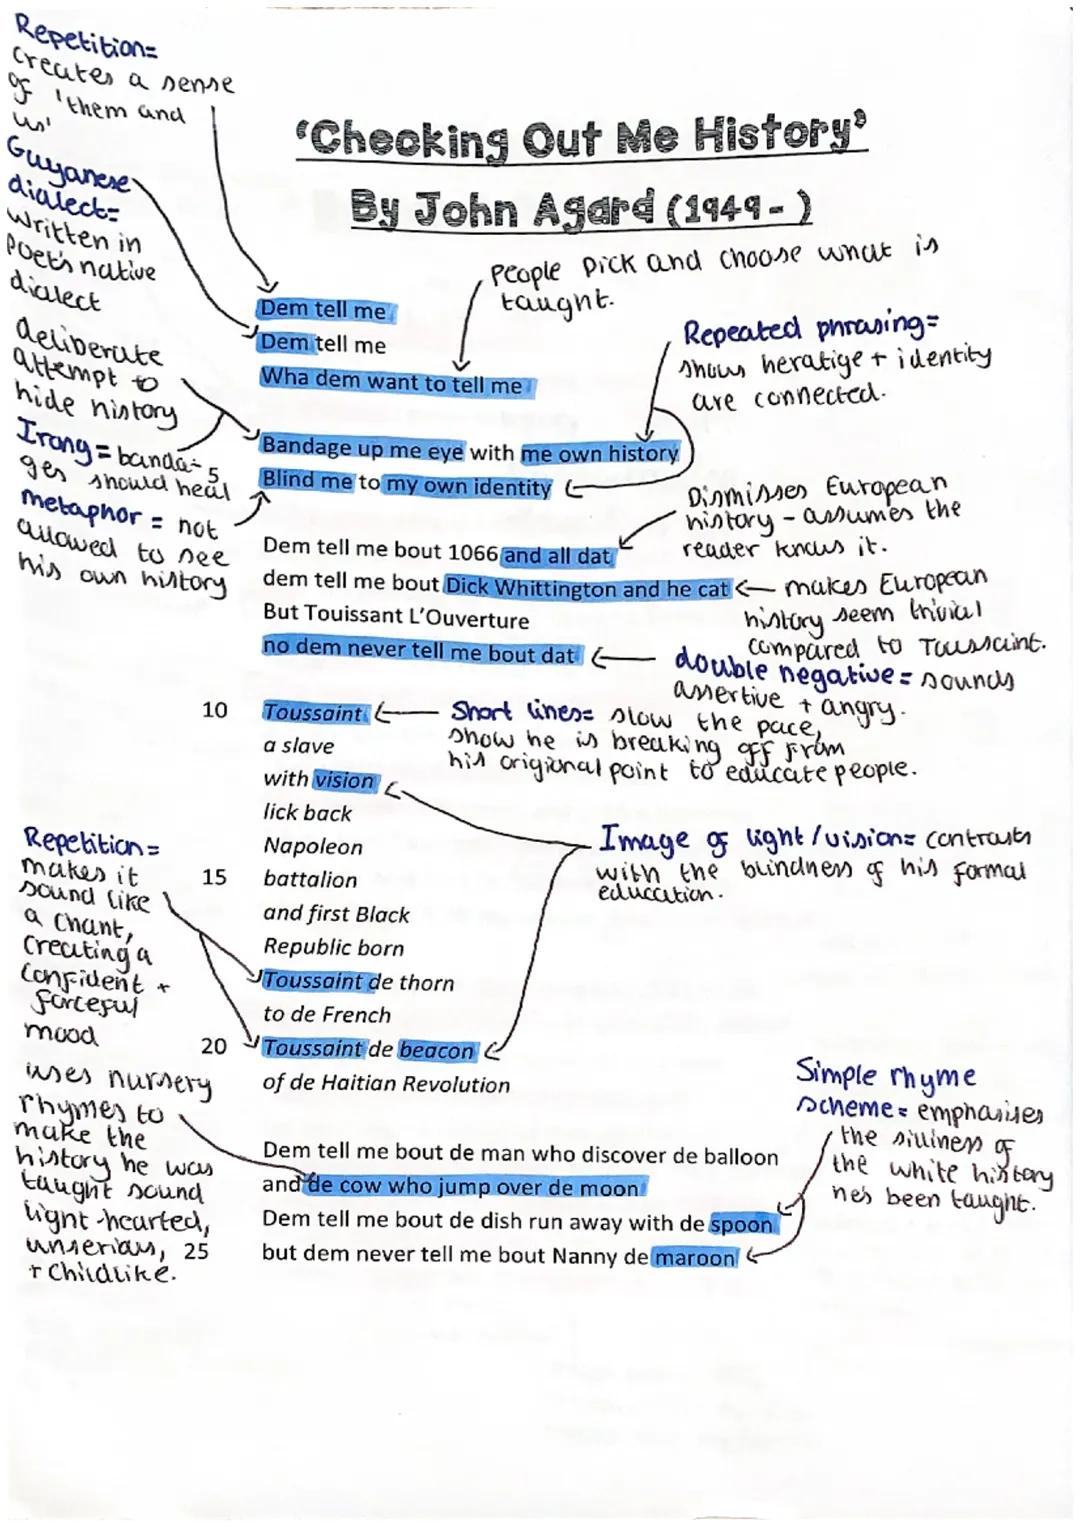 Repetition=
creates a sense
of 'them and
us'
'Checking Out Me History'
By John Agard (1949-)
Guyanese
dialect=
written in
poet's native
dialect
people pick and choose what is
taught.
Dem tell me
Dem tell me
Wha dem want to tell me
Repeated phrasing=
shows heratige + identity
are connected.
deliberate
attempt to
hide history
Irony= banda-
ges should heal
metaphor = not
allowed to see
his own history
5
Bandage up me eye with me own history
Blind me to my own identity
Dismisses European
history - assumes the
reader knows it.
Dem tell me bout 1066 and all dat
dem tell me bout Dick Whittington and he cat
But Touissant L'Ouverture
no dem never tell me bout dat
makes European
history seem trivial
compared to Toussaint.
double negative= sounds
assertive + angry.
10 Toussaint
a slave
with vision
lick back
Napoleon
15 battalion
and first Black
Republic born
Toussaint de thorn
to de French
20 Toussaint de beacon
of de Haitian Revolution
Short lines= slow the pace,
show he is breaking off from
his origional point to educate people.
Image of light/vision= contrasts
with the blindness of his formal
education.
Repetition=
makes it
sound like
a chant,
creating a
confident +
forceful
mood
uses nursery
rhymes to
make the
history he was
taught sound
light-hearted,
unserious,
+ childlike.
Dem tell me bout de man who discover de balloon
and de cow who jump over de moon
Dem tell me bout de dish run away with de spoon
25 but dem never tell me bout Nanny de maroon
Simple rhyme
scheme= emphasises
the silliness of
the white history
he's been taught.